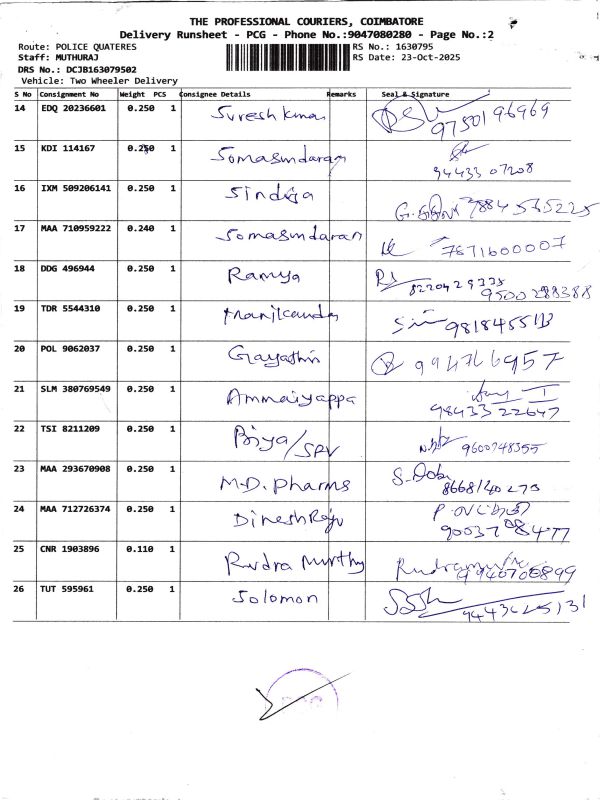 THE PROFESSIONAL COURIERS, COIMBATORE
Delivery Runsheet - PCG - Phone No.:9047080280 - Page No.:2
Route: POLICE QUATERES RS No.: 1630795
Staff: MUTHURAJ RS Date: 23-Oct-2025
DRS No.: DCJB163079502
Vehicle: Two Wheeler Delivery
S No Consignment No Weight PCS Consignee Details Remarks Seal & Signature
14 EDQ 20236601 0.250 1 Suresh Kumar 9750196969
15 KDI 114167 0.250 1 Somasundaran 94433 07208
16 IXM 509206141 0.250 1 Sindiya 7884565225
17 MAA 710959222 0.240 1 Somasundaran 7871600007
18 DDG 496944 0.250 1 Ramya 8220429338
9500288388
19 TDR 5544310 0.250 1
20 POL 9062037 0.250 1 Gayathri
21 SLM 380769549 0.250 1 Ammaiyappa 98433 22647
22 TSI 8211209 0.250 1 Priya/SPV 9600748355
23 MAA 293670908 0.250 1 M.D. pharms 8668140273
24 MAA 712726374 0.250 1 Dinesh Raju
25 CNR 1903896 0.110 1 Rudra Murthy 9940700899
26 TUT 595961 0.250 1 Solomon 9443625131